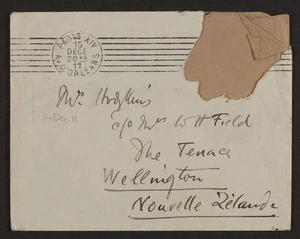 PARIS XIV
15
DECE
20
11
AV. D'ORLEANS
Mrs Hodgkins
14 Dec 11
c/o Mrs W H Field
The Terrace
Wellington
Nouvelle Zélande